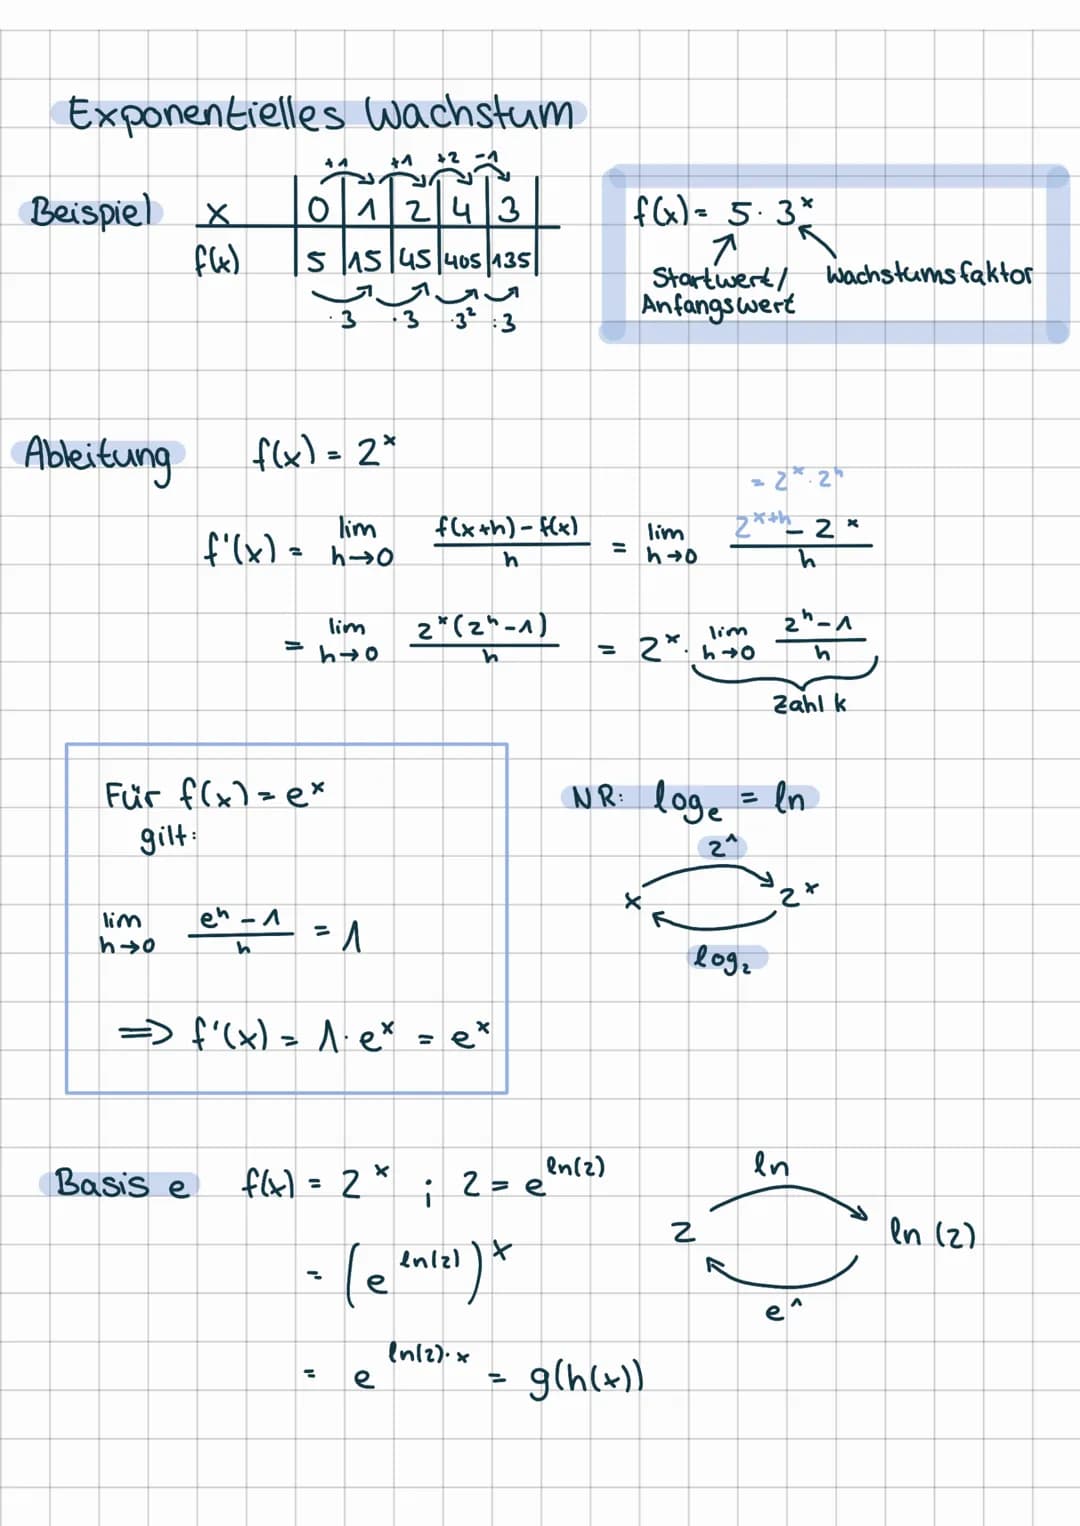 Exponentielles Wachstum
+1 +1 +2 -1
Beispiel x 0 1 2 4 3
f(x) 5 15 45 405 135
·3 ·3 ·3² :3
f(x) = 5 · 3ˣ
Startwert/ Wachstumsfaktor
Anfangswert
Ableitung f(x) = 2ˣ
= 2ˣ · 2ʰ
f'(x) = lim h→0 (f(x+h) - f(x))/h = lim h→0 (2ˣ⁺ʰ - 2ˣ)/h
= lim h→0 2ˣ(2ʰ-1)/h = 2ˣ · lim h→0 (2ʰ-1)/h
Zahl k
Für f(x) = eˣ
gilt:
lim h→0 (eʰ - 1)/h = 1
⇒ f'(x) = 1 · eˣ = eˣ
NR: logₑ = ln
2^
x 2ˣ
log₂
Basis e f(x) = 2ˣ ; 2 = e^ln(2)
= (e^ln(2))ˣ
= e^ln(2)·x = g(h(x))
ln
2 ln (2)
e^